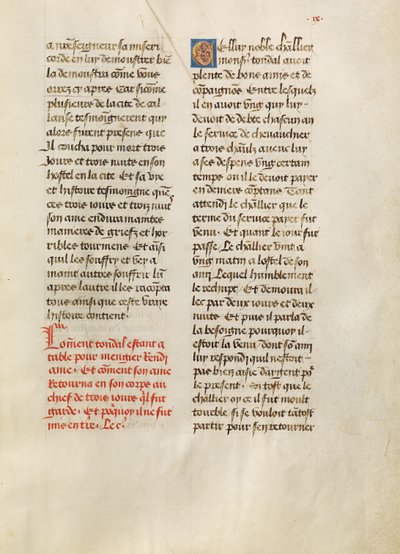 .ix.
a nr̃eseigneur sa miseri
corde en luy demonstrer biẽ
la demonstra cõme vous
orrez cy apres Car sicõme
plusieurs de la cite de cal
lanse tesmoingnerent qui
alors furent presens que
Il coucha pour mort trois
Jours et trois nuits en son
hostel en la cite Et sa vye
et histoire tesmoingne que
ces trois iours et trois nuis
son ame endura maintes
manieres de griefz et hor
ribles tourmens Et ainsi
quil les souffry et vey a
maint autres souffrir lui
apres lautre il les racopta
tous ainsi que ceste vraye
histoire contient.
Coment tondal estant a
table pour mengier Rendi
ame. Et cõment son ame
Retourna en son corps au
chief de trois iours ql̃ fut
garde. Et pq̃uoy il ne fut
mis en tr̃e. Le c.
Cellui noble ch̃llier
mons.r tondal auoit
plente de bons amis et de
cõpaignõs Entre lesquelz
il en auoit vng qui luy
deuoit de debte chascun an
le seruice de cheuauchier
a trois ch̃aulz auec luy
a ses despens vng certain
temps ou il le deuoit payer
en deniers cõptans Tant
attendi le ch̃llier que le
terme du seruice payer fut
venu. Et quant le iour fut
passe Le ch̃llier vint a
vng matin a lostel de son
ami Lequel humblement
le rechupt Et demoura il
lec par deux iours et deux
nuits Et puis il parla de
la besoigne pourquoy il
estoit la venu dont sõ ami
luy respondi quil nestoit
pas bien aise dargent por
le present. Si tost que le
ch̃llier oy ce il fut moult
trouble si se vouloit tãtost
partir pour sen retourner